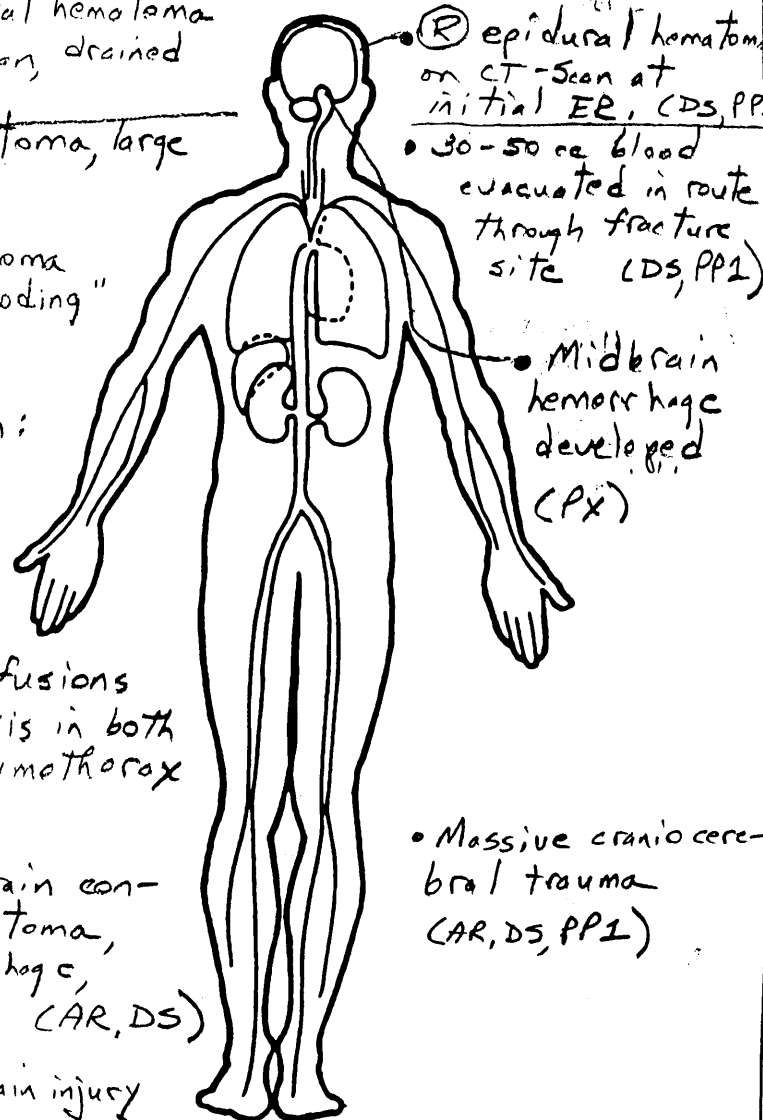 al hematoma
an, drained
toma, large
oma
oding"
n:
fusions
is in both
umothorax
ain con-
toma,
hage,
(AR, DS)
ain injury
• Ⓡ epidural hematoma
on CT-Scan at
initial ER. (DS, PP
• 30-50 cc blood
evacuated in route
through fracture
site (DS, PP1)
• Midbrain
hemorrhage
developed
(PX)
• Massive craniocere-
bral trauma
(AR, DS, PP1)